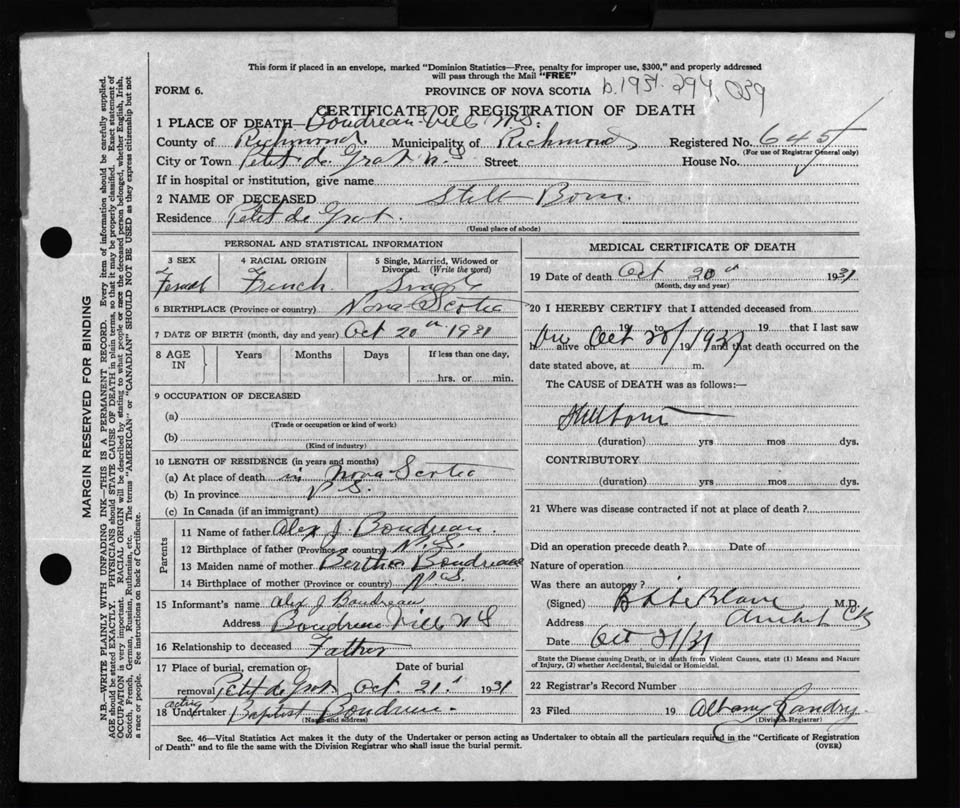 This form if placed in an envelope, marked "Dominion Statistics—Free, penalty for improper use, $300," and properly addressed
will pass through the Mail "FREE"
FORM 6.
PROVINCE OF NOVA SCOTIA b.1931. 294,039
CERTIFICATE OF REGISTRATION OF DEATH
1 PLACE OF DEATH— Boudreau Ville N.S.
County of Richmond. Municipality of Richmond Registered No. 645
(For use of Registrar General only)
City or Town Petit de Grat N S Street House No.
If in hospital or institution, give name
2 NAME OF DECEASED Still Born.
Residence Petit de Grat.
(Usual place of abode)
PERSONAL AND STATISTICAL INFORMATION
3 SEX 4 RACIAL ORIGIN 5 Single, Married, Widowed or
Divorced. (Write the word)
Female French Single
6 BIRTHPLACE (Province or country) Nova Scotia
7 DATE OF BIRTH (month, day and year) Oct 20th 1931
8 AGE IN Years Months Days If less than one day,
hrs. or min.
9 OCCUPATION OF DECEASED
(a)
(Trade or occupation or kind of work)
(b)
(Kind of industry)
10 LENGTH OF RESIDENCE (in years and months)
(a) At place of death in Nova Scotia
(b) In province N.S.
(c) In Canada (if an immigrant)
Parents
11 Name of father Alex J. Boudreau.
12 Birthplace of father (Province or country) N.S.
13 Maiden name of mother Bertha Boudreau
14 Birthplace of mother (Province or country) N.S.
15 Informant's name Alex J Boudreau
Address Boudreau Ville N S
16 Relationship to deceased Father
17 Place of burial, cremation or Date of burial
removal Petit de Grat. Oct. 21st 1931
acting
18 Undertaker Baptist Boudreau.
(Name and address)
MEDICAL CERTIFICATE OF DEATH
19 Date of death Oct 20th 1931
(Month, day and year)
20 I HEREBY CERTIFY that I attended deceased from
19 to 19 that I last saw
h alive on Oct 20/ 1931 and that death occurred on the
date stated above, at m.
The CAUSE of DEATH was as follows:—
Stillborn
(duration) yrs mos dys.
CONTRIBUTORY
(duration) yrs mos dys.
21 Where was disease contracted if not at place of death?
Did an operation precede death? Date of
Nature of operation
Was there an autopsy?
(Signed) LeBlanc M.D.
Address Arichat CB
Date Oct 21/31
State the Disease causing Death, or in death from Violent Causes, state (1) Means and Nature
of Injury, (2) whether Accidental, Suicidal or Homicidal.
22 Registrar's Record Number
23 Filed 19 Albany Landry
(Division Registrar)
Sec. 46—Vital Statistics Act makes it the duty of the Undertaker or person acting as Undertaker to obtain all the particulars required in the "Certificate of Registration
of Death" and to file the same with the Division Registrar who shall issue the burial permit.
(OVER)
MARGIN RESERVED FOR BINDING
N.B.—WRITE PLAINLY WITH UNFADING INK—THIS IS A PERMANENT RECORD. Every item of information should be carefully supplied.
AGE should be stated EXACTLY. PHYSICIANS should STATE CAUSE OF DEATH in plain terms, so that it may be properly classified. Exact statement of
OCCUPATION is very important. RACIAL ORIGIN will be described by stating to what people or race the deceased person belonged, whether English, Irish,
Scotch, French, German, Russian, Ruthenian, etc. The terms "AMERICAN" or "CANADIAN" SHOULD NOT BE USED as they express citizenship but not
a race or people. See instructions on back of Certificate.